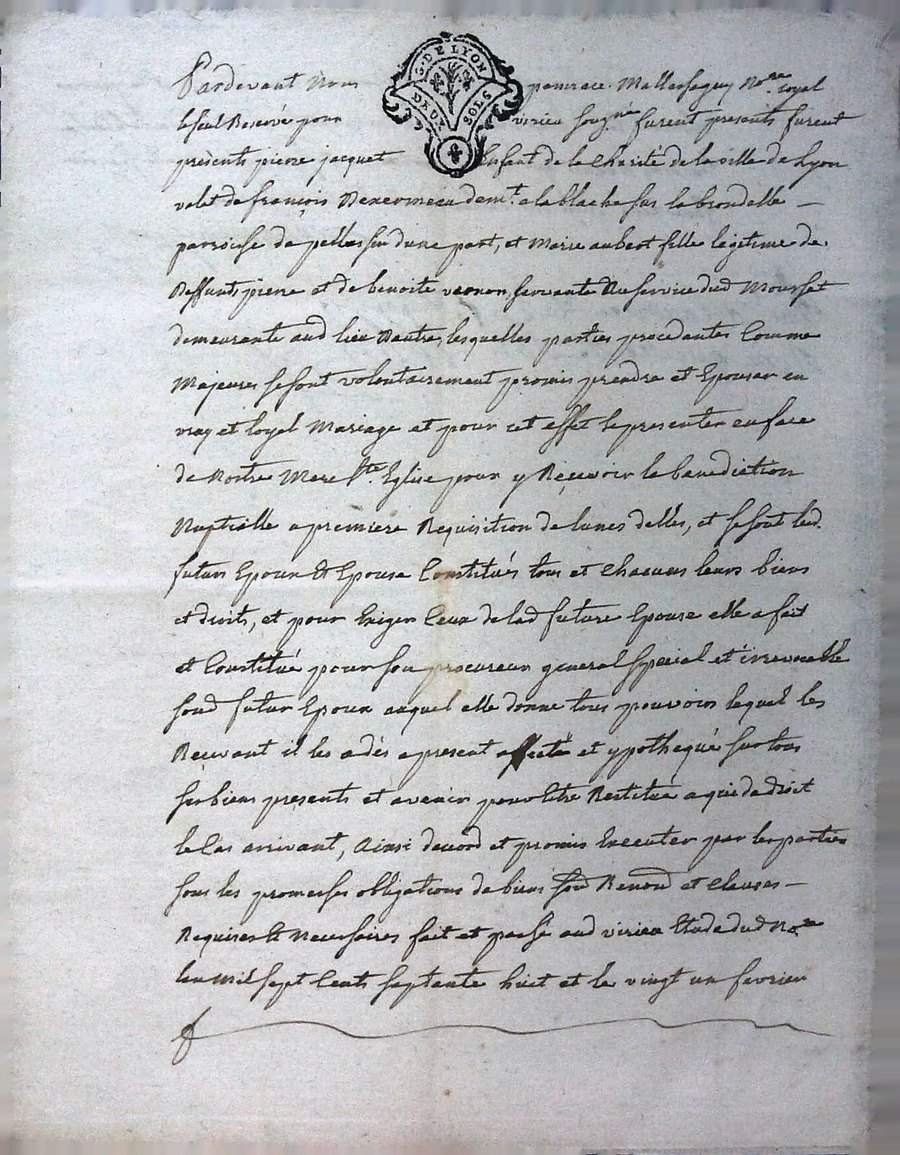 G. DE LYON
DEUX SOLS
Pardevant Nous pancrace Mallassagny No.re royal
le seul Reservé pour virieu sousgné furent presents furent
présents pierre jacquet Enfant de la Charité de la ville de Lyon
valet de françois demt. a la blache sur la brondelle —
parroisse de dune part, et Marie aubert fille légitime de
deffunts pierre et de benoite vernon, servante Au service dud Mousset
demeurante aud lieu Dautre, lesquelles parties procedantes Comme
Majeures se sont volontairement promis prendre et Epouser en
vray et loyal Mariage et pour cet effet se presenter en face
de Nostre Mere Ste. Eglise pour y Reçevoir la benediction
Nuptialle a premiere Requisition de lunes delles, et se sont lesd.
futurs Epoux & Epouse Constitués tous et Chacuns leurs biens
et droits, et pour Exiger Ceux de lad future Epouse elle a fait
et Constitué pour son procureur general special et irrevocable
sond futur Epoux auquel elle donne tous pouvoirs lequel les
Reçevant il les a dès apresent affecté et ypothequé sur tous
ses biens presents et avenir pour Etre Restitué a qui de droit
le Cas arrivant, Ainsi dacord et promis Executer par les parties
sous les promesses obligations de biens et Clauses —
Requises & Necessaires fait et passé aud virieu Etude dud No.re
lan Mil sept Cents septante huit et le vingt un fevrier